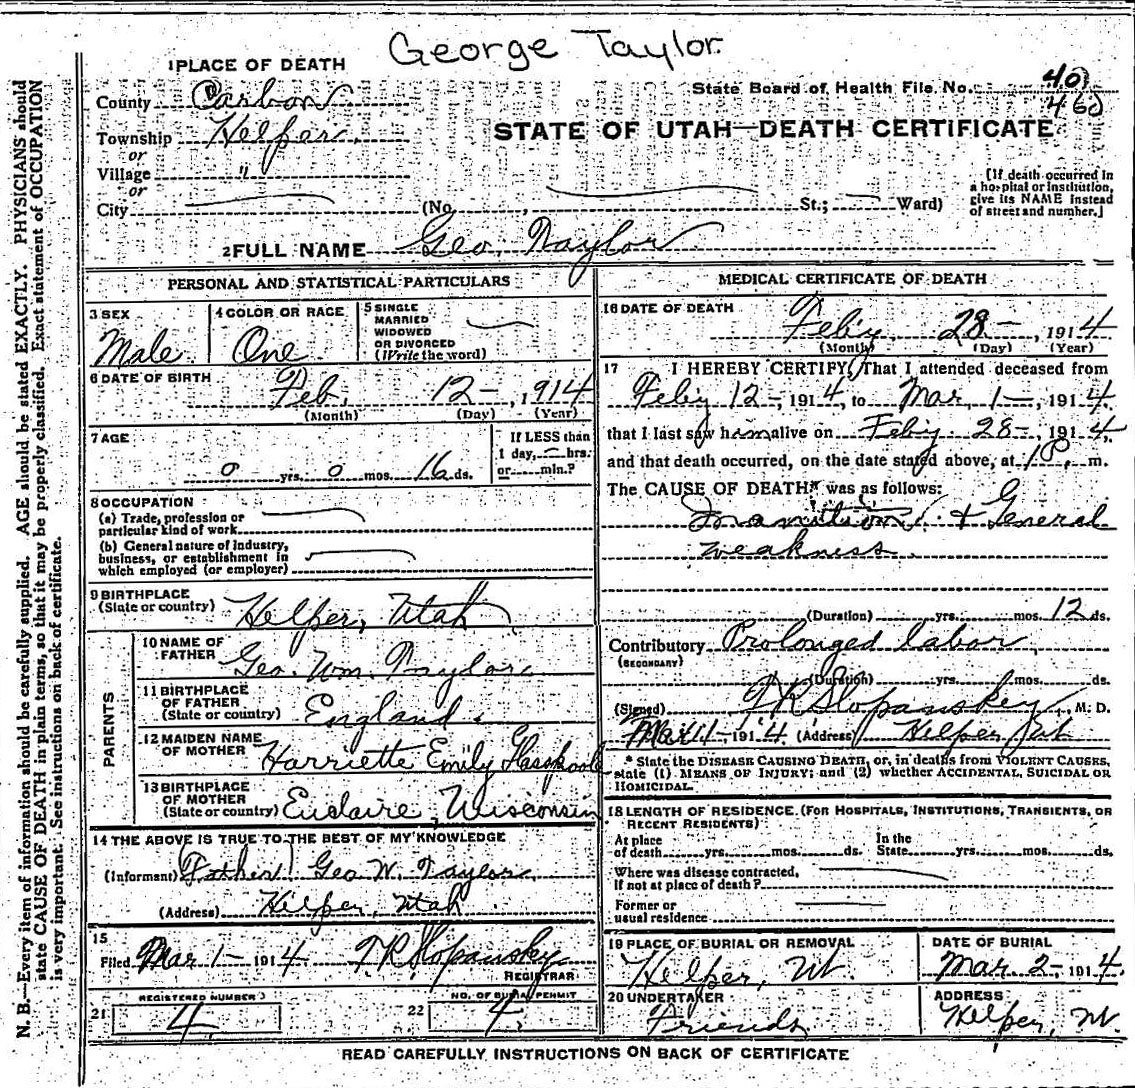 George Taylor.
1 PLACE OF DEATH
State Board of Health File No.
40
460
County Carbon
STATE OF UTAH—DEATH CERTIFICATE
Township Helper
or
Village "
or
City (No. , St.; Ward)
[If death occurred in
a hospital or institution,
give its NAME instead
of street and number.]
2 FULL NAME Geo. Taylor
PERSONAL AND STATISTICAL PARTICULARS
3 SEX
Male
4 COLOR OR RACE
One
5 SINGLE
MARRIED
WIDOWED
OR DIVORCED
(Write the word)
6 DATE OF BIRTH Feb. 12-, 1914
(Month) (Day) (Year)
7 AGE
0 yrs. 0 mos. 16 ds.
If LESS than
1 day, hrs.
or min.?
8 OCCUPATION
(a) Trade, profession or
particular kind of work
(b) General nature of industry,
business, or establishment in
which employed (or employer)
9 BIRTHPLACE
(State or country) Helper, Utah
PARENTS
10 NAME OF
FATHER Geo. Wm. Taylor
11 BIRTHPLACE
OF FATHER
(State or country) England
12 MAIDEN NAME
OF MOTHER Harriette Emily
13 BIRTHPLACE
OF MOTHER
(State or country) Euclaire, Wisconsin
14 THE ABOVE IS TRUE TO THE BEST OF MY KNOWLEDGE
(Informant) (Father) Geo W. Taylor
(Address) Helper, Utah
15
Filed Mar 1- 1914 T R Slopanskey
REGISTRAR
21 REGISTERED NUMBER
4
22 NO. OF BURIAL PERMIT
4
MEDICAL CERTIFICATE OF DEATH
16 DATE OF DEATH Feby 28-, 1914
(Month) (Day) (Year)
17 I HEREBY CERTIFY, That I attended deceased from
Feby 12-, 1914, to Mar. 1-, 1914.
that I last saw him alive on Feby. 28-, 1914,
and that death occurred, on the date stated above, at 1 P. m.
The CAUSE OF DEATH* was as follows:
Inanition & General
weakness.
(Duration) yrs. mos. 12 ds.
Contributory Prolonged labor
(SECONDARY)
(Duration) yrs. mos. ds.
(Signed) T R Slopanskey, M. D.
Mar 1-, 1914 (Address) Helper Ut
* State the DISEASE CAUSING DEATH, or, in deaths from VIOLENT CAUSES,
state (1) MEANS OF INJURY; and (2) whether ACCIDENTAL, SUICIDAL OR
HOMICIDAL.
18 LENGTH OF RESIDENCE. (FOR HOSPITALS, INSTITUTIONS, TRANSIENTS, OR
RECENT RESIDENTS)
At place
of death yrs. mos. ds.
In the
State yrs. mos. ds.
Where was disease contracted,
if not at place of death?
Former or
usual residence
19 PLACE OF BURIAL OR REMOVAL
Helper, Ut.
DATE OF BURIAL
Mar. 2-, 1914.
20 UNDERTAKER
Friends
ADDRESS
Helper, Ut.
READ CAREFULLY INSTRUCTIONS ON BACK OF CERTIFICATE
N. B.—Every item of information should be carefully supplied. AGE should be stated EXACTLY. PHYSICIANS should
state CAUSE OF DEATH in plain terms, so that it may be properly classified. Exact statement of OCCUPATION
is very important. See instructions on back of certificate.